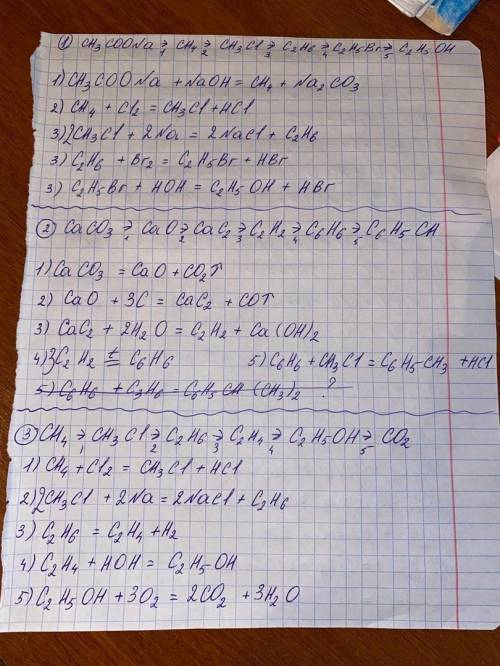 ① CH₃COONa →1 CH₄ →2 CH₃Cl →3 C₂H₆ →4 C₂H₅Br →5 C₂H₅OH
1) CH₃COONa + NaOH = CH₄ + Na₂CO₃
2) CH₄ + Cl₂ = CH₃Cl + HCl
3) 2CH₃Cl + 2Na = 2NaCl + C₂H₆
3) C₂H₆ + Br₂ = C₂H₅Br + HBr
3) C₂H₅Br + HOH = C₂H₅OH + HBr
② CaCO₃ →1 CaO →2 CaC₂ →3 C₂H₂ →4 C₆H₆ →5 C₆H₅CH
1) CaCO₃ = CaO + CO₂↑
2) CaO + 3C = CaC₂ + CO↑
3) CaC₂ + 2H₂O = C₂H₂ + Ca(OH)₂
4) 3C₂H₂ =t C₆H₆ 5) C₆H₆ + CH₃Cl = C₆H₅-CH₃ + HCl
5) C₆H₆ + C₃H₆ = C₆H₅CH(CH₃)₂ ?
③ CH₄ →1 CH₃Cl →2 C₂H₆ →3 C₂H₄ →4 C₂H₅OH →5 CO₂
1) CH₄ + Cl₂ = CH₃Cl + HCl
2) 2CH₃Cl + 2Na = 2NaCl + C₂H₆
3) C₂H₆ = C₂H₄ + H₂
4) C₂H₄ + HOH = C₂H₅OH
5) C₂H₅OH + 3O₂ = 2CO₂ + 3H₂O